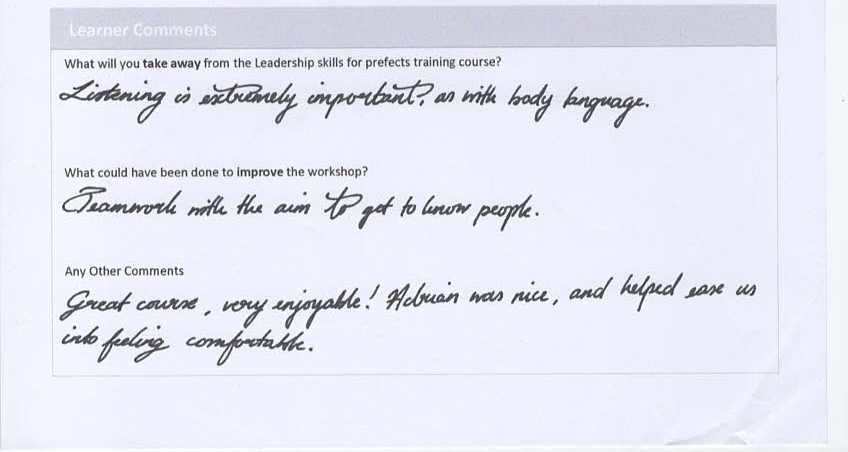 Learner Comments
What will you take away from the Leadership skills for prefects training course?
Listening is extremely important, as with body language.
What could have been done to improve the workshop?
Teamwork with the aim to get to know people.
Any Other Comments
Great course, very enjoyable! Adrian was nice, and helped ease us
into feeling comfortable.